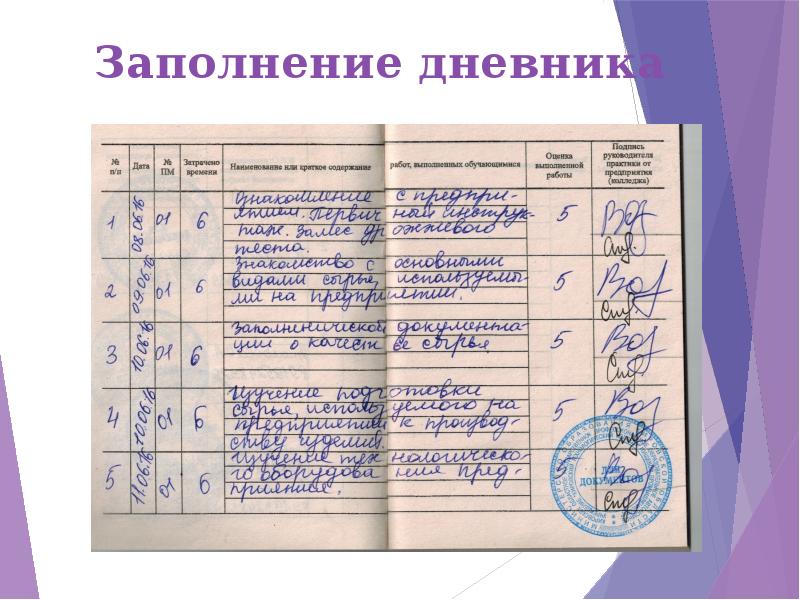 Заполнение дневника
№ п/п
Дата
№ ПМ
Затрачено времени
Наименование или краткое содержание работ, выполненных обучающимися
Оценка выполненной работы
Подпись руководителя практики от предприятия (колледжа)
1 08.06.16 01 6 Ознакомление с предпри-
ятием. Первичный инструк-
таж. Замес дрожжевого
теста. 5
2 09.06.16 01 6 Знакомство с основными
видами сырья, используемы-
ми на предприятии. 5
3 10.06.16 01 6 Заполнение документа-
ции о качестве сырья 5
4 10.06.16 01 6 Изучение подготовки
сырья, используемого на
предприятии к производ-
ству изделий. 5
5 11.06.16 01 6 Изучение технологическо-
го оборудования пред-
приятия. 5
ДЛЯ
ДОКУМЕНТОВ